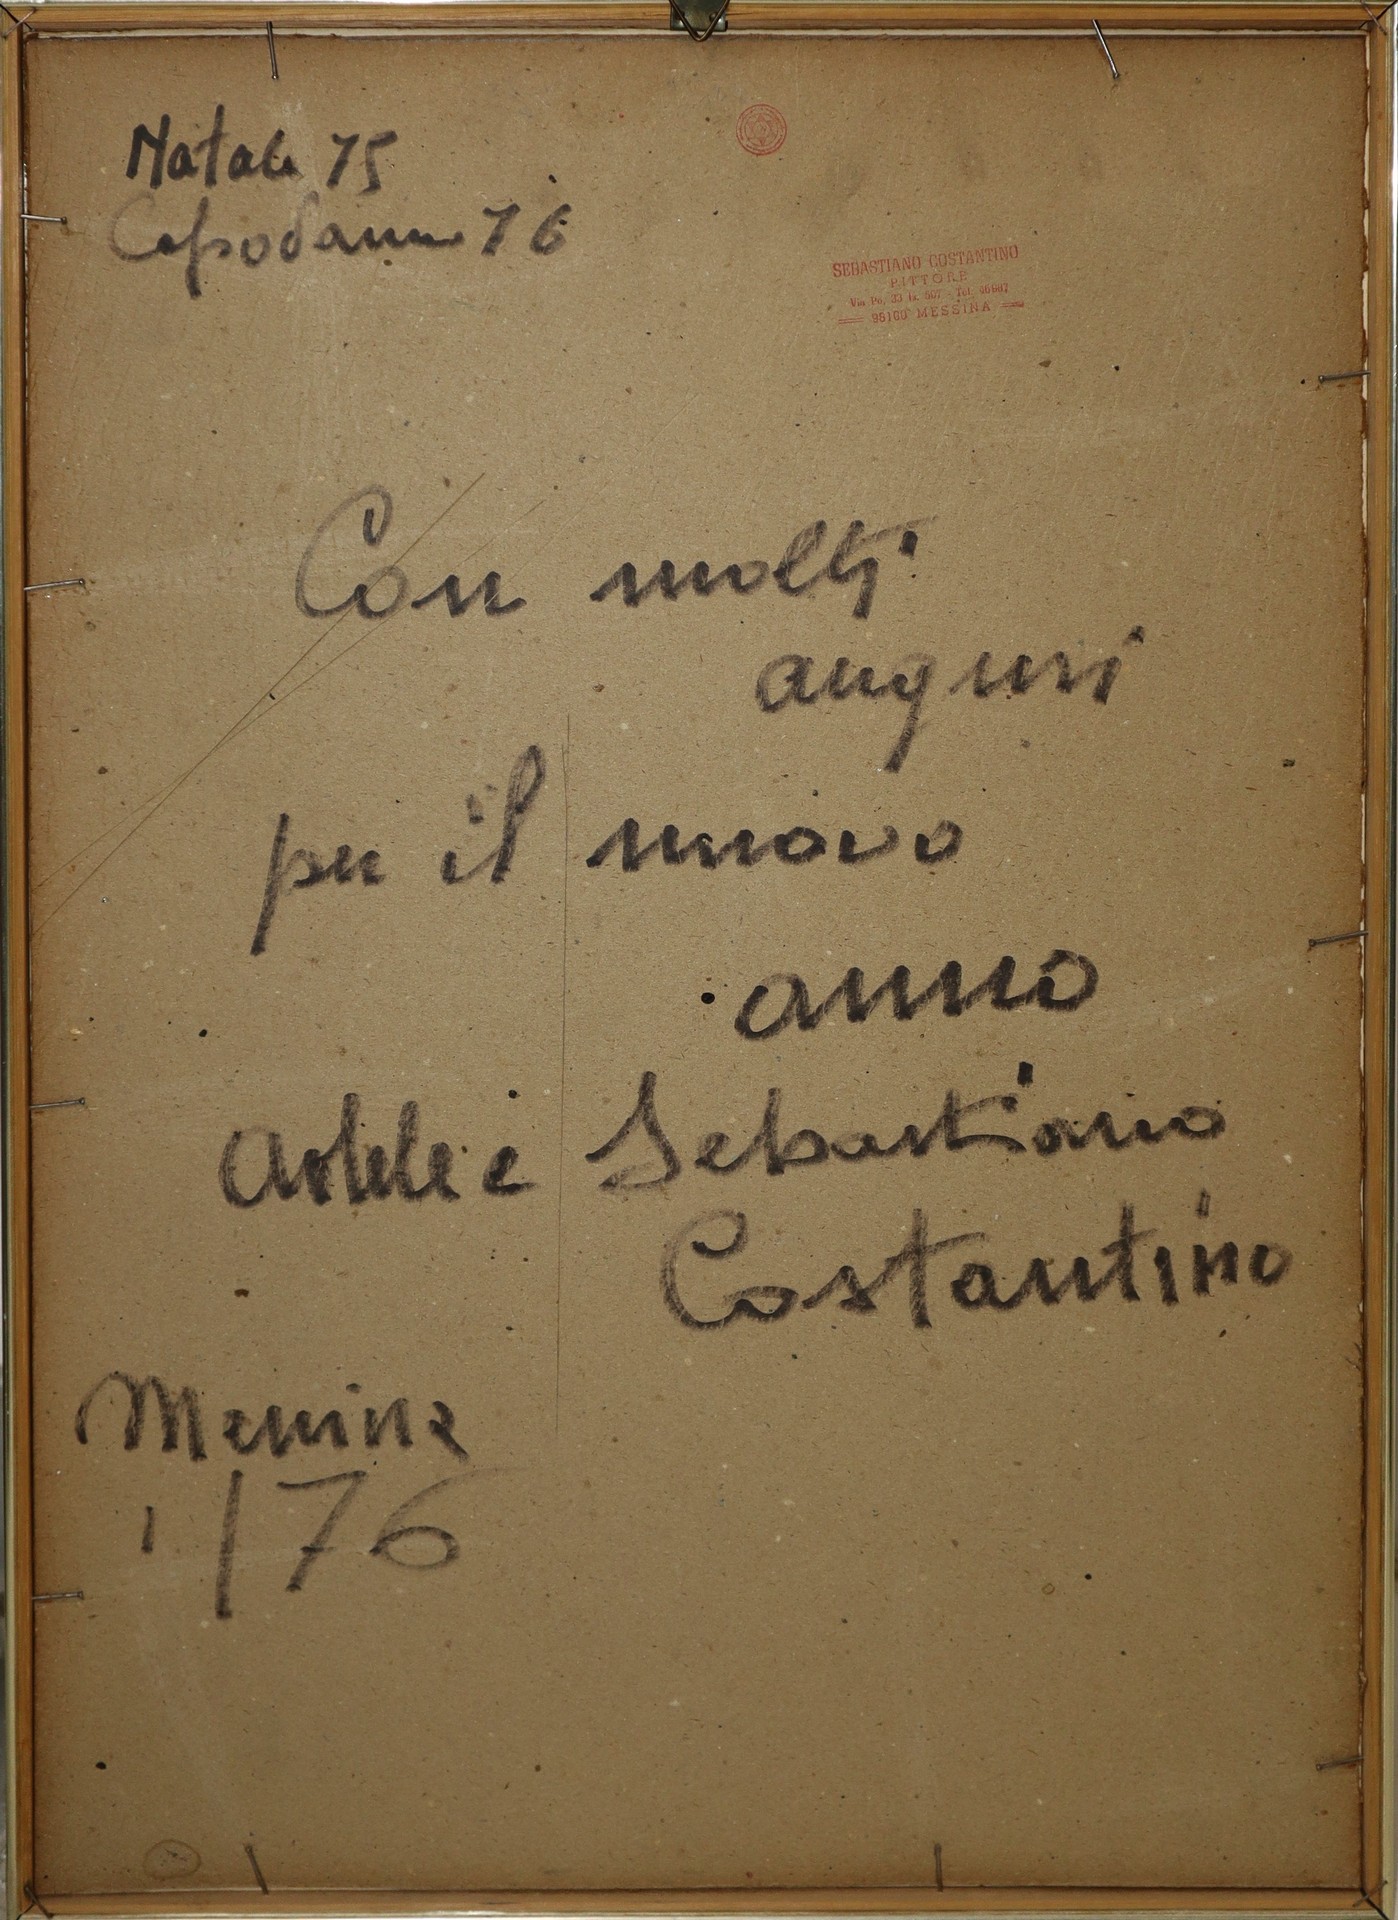 Natale 75
Capodanno 76
SEBASTIANO COSTANTINO
PITTORE
Via Po, 33 Is. 507 - Tel.
98100 MESSINA
Con molti
auguri
per il nuovo
anno
Adele e Sebastiano
Costantino
Messina
1/76